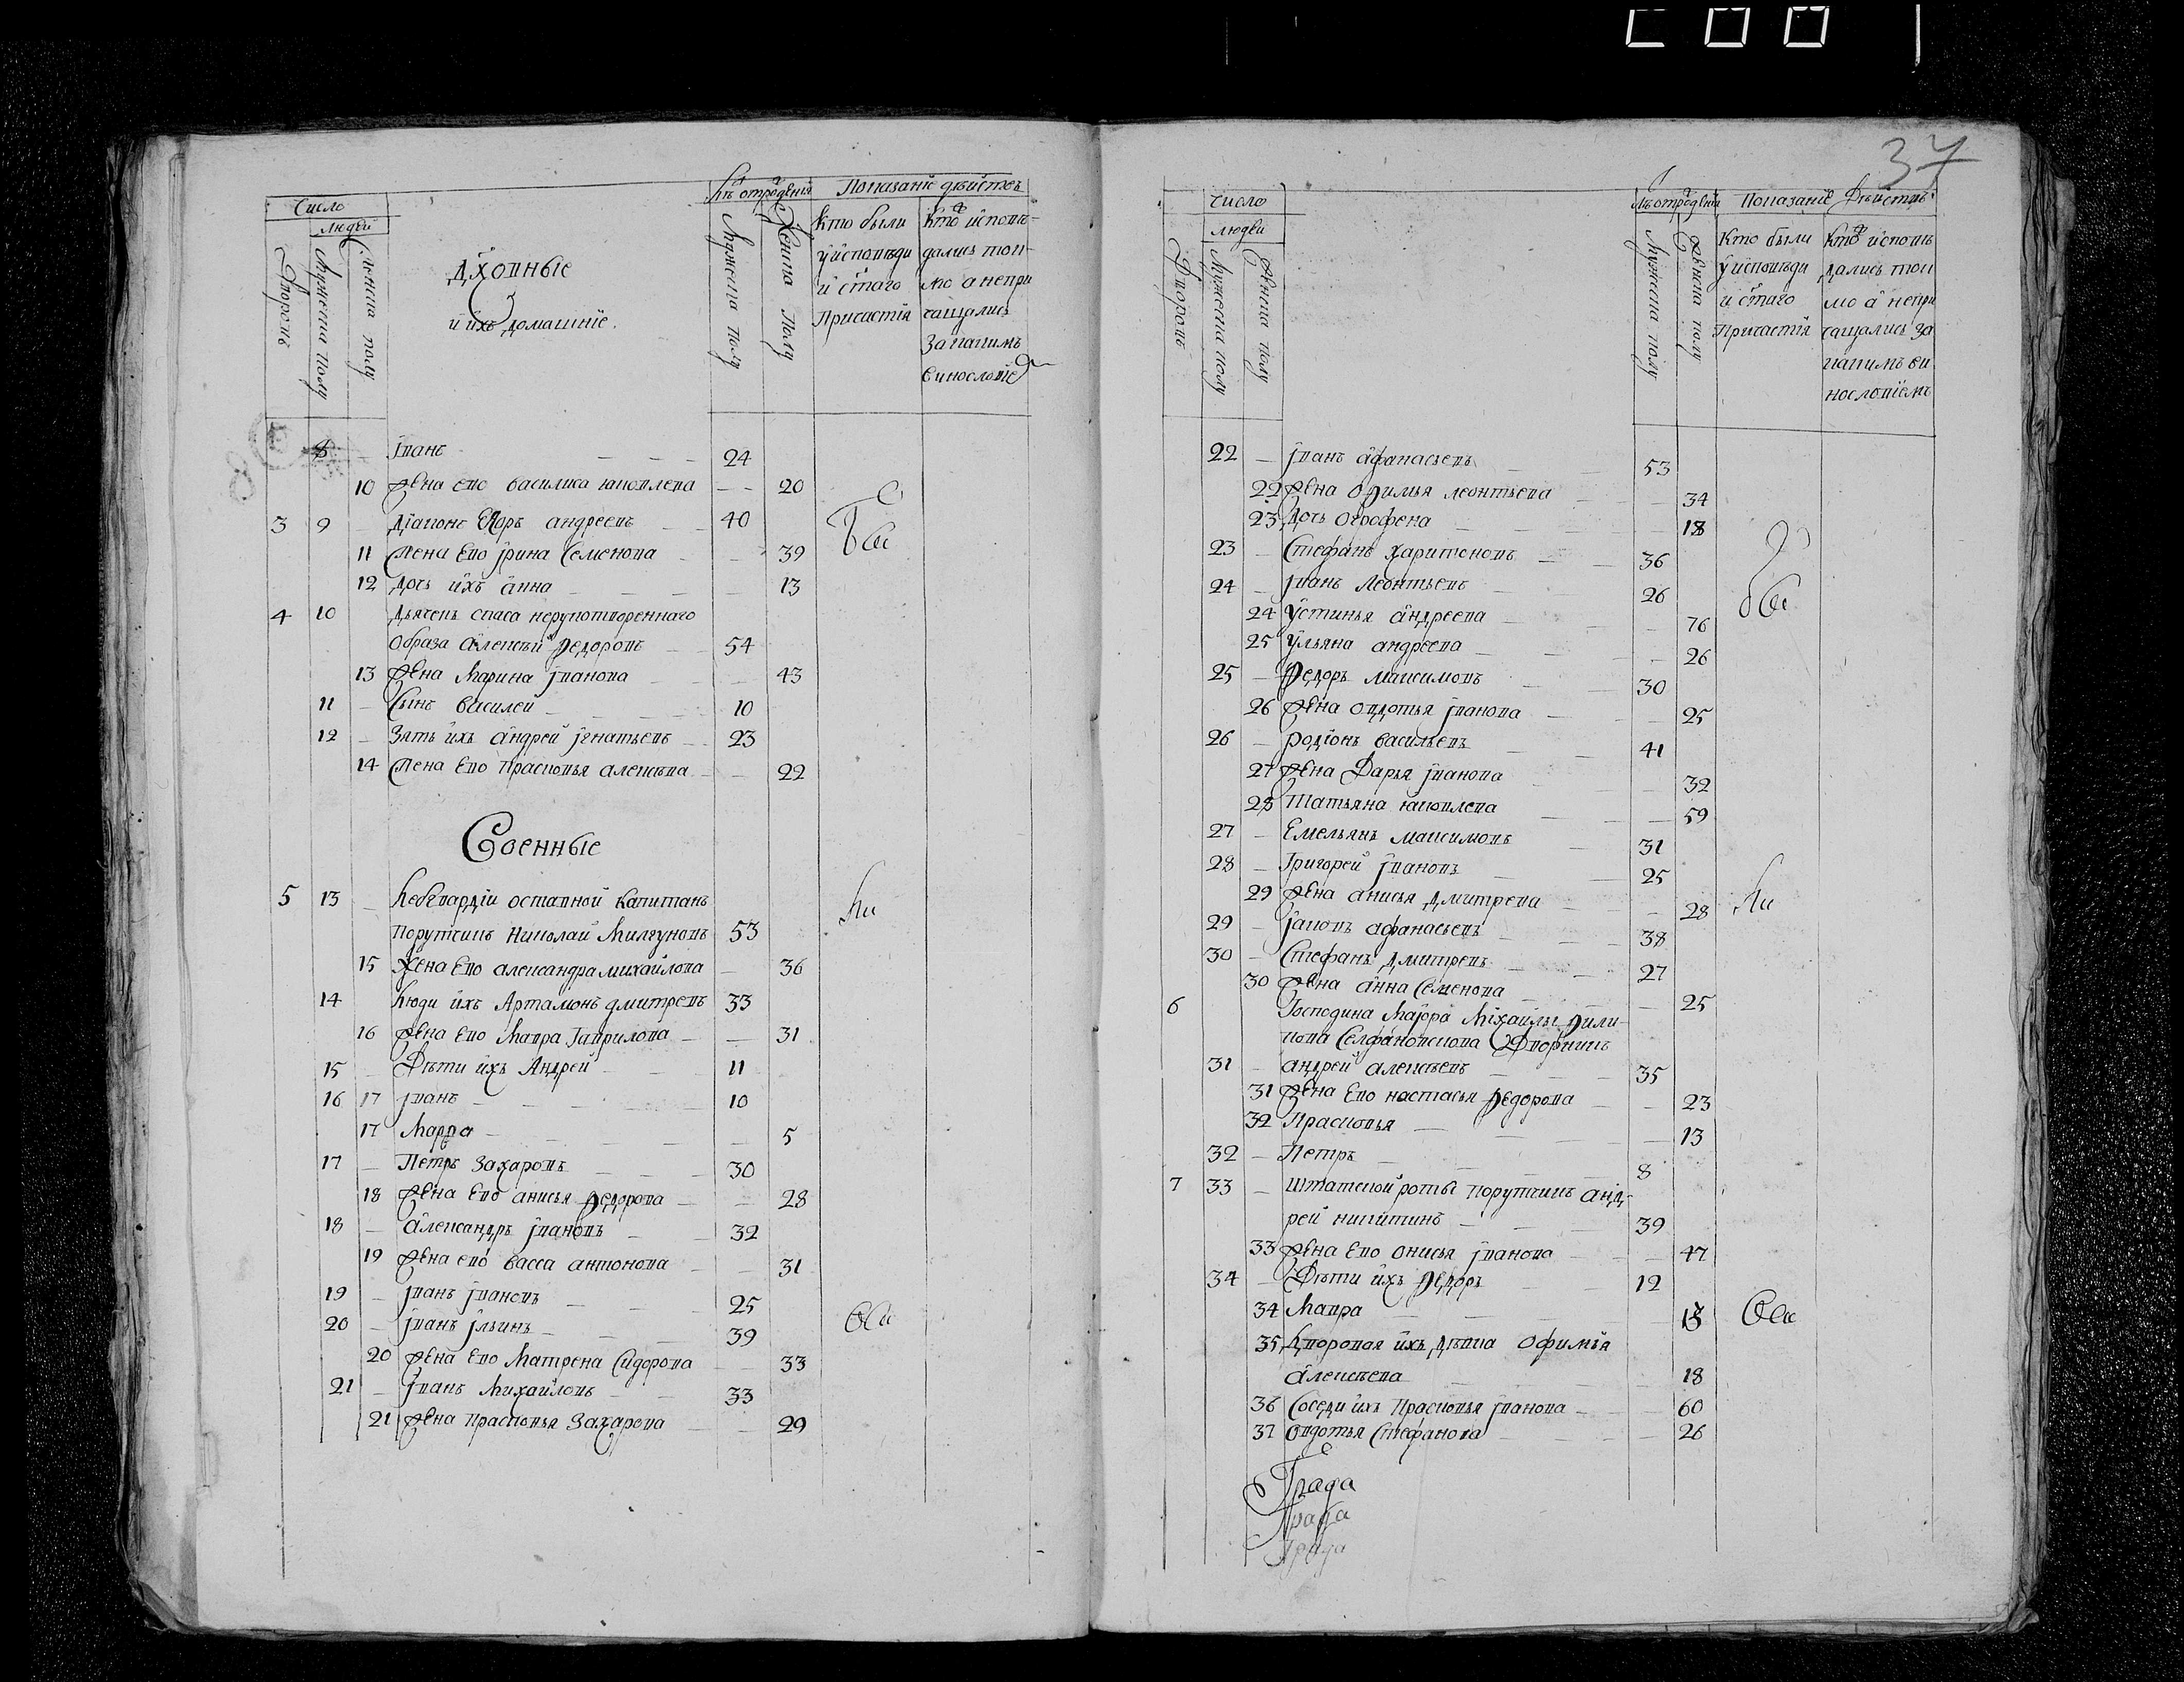 37
Число
людей
Дворовъ
Мужеска полу
Женска полу
Дховные
и ихъ домашніе.
Лѣ отроденія
Мужеска полу
Женска полу
Показаніе действъ
Кто были
у исповѣди
и стаго
Причастія
Кто исповѣ-
дались ток-
мо а непри
чащались
За какимъ
винословіе
8 Іванъ 24
10 Жена его василиса яковлева 20
3 9 Діаконъ Егоръ андреевъ 40
11 Жена Его Ірина Семенова 39
12 Дочь ихъ анна 13
4 10 Дьячекъ спаса нерукотвореннаго
образа алексѣй Федоровъ 54
13 Жена Марина Іванова 43
11 Сынъ василей 10
12 Зять ихъ андрей Ігнатьевъ 23
14 Жена Его Прасковья алексѣва 22
Были
Военные
5 13 Лебгвардіи отставной капитанъ
порутчикъ Николай Милгуновъ 53
15 Жена Его александра михайлова 36
14 Люди ихъ Артамонъ дмитревъ 33
16 Жена Его Мавра Гаврилова 31
15 Дѣти ихъ Андрей 11
16 17 Іванъ 10
17 Марфа 5
17 Петръ Захаровъ 30
18 Жена Его анисья Федорова 28
18 александръ Івановъ 32
19 Жена его васса антонова 31
19 Іванъ Івановъ 25
20 Іванъ Ільинъ 39
20 Жена Его Матрена Сидорова 33
21 Іванъ Михайловъ 33
21 Жена прасковья Захарова 29
Число
людей
Дворовъ
Мужеска полу
Женска полу
Лѣ отроденія
Мужеска полу
Женска полу
Показаніе Дѣйствъ
Кто были
у исповѣди
и стаго
Причастія
Кто исповѣ
дались ток
мо а непри
чащались за
какимъ ви
нословіемъ
22 Іванъ афанасьевъ 53
22 Жена Офимья леонтьева 34
23 Дочь Огрофена 18
23 Стефанъ Харитоновъ 36
24 Іванъ Леонтьевъ 26
24 Устинья андреева 76
25 Ульяна андреева 26
25 Федоръ Максимовъ 30
26 Жена овдотья Іванова 25
26 Родіонъ васильевъ 41
27 Жена Дарья Іванова 32
28 Татьяна яковлева 59
27 Емельянъ максимовъ 31
28 Григорей Івановъ 25
29 Жена анисья Дмитрева 28
29 Іаковъ афанасьевъ 38
30 Стефанъ Дмитревъ 27
30 Жена анна Семенова 25
6 Господина Маіора Міхайлы Фили
пова Селфановскова Дворникъ
31 андрей алексѣевъ 35
31 Жена Его настасья Федорова 23
32 Прасковья 13
32 Петръ 8
7 33 Штатской роты порутчикъ анд-
рей никитинъ 39
33 Жена Его онисья Іванова 47
34 Дѣти ихъ Федоръ 12
34 Мавра
35 Дворовая ихъ дѣвка Офимія
алексѣева 18
36 Соседи ихъ Прасковья Іванова 60
37 Овдотья Стефанова 26
Града
Града
Града